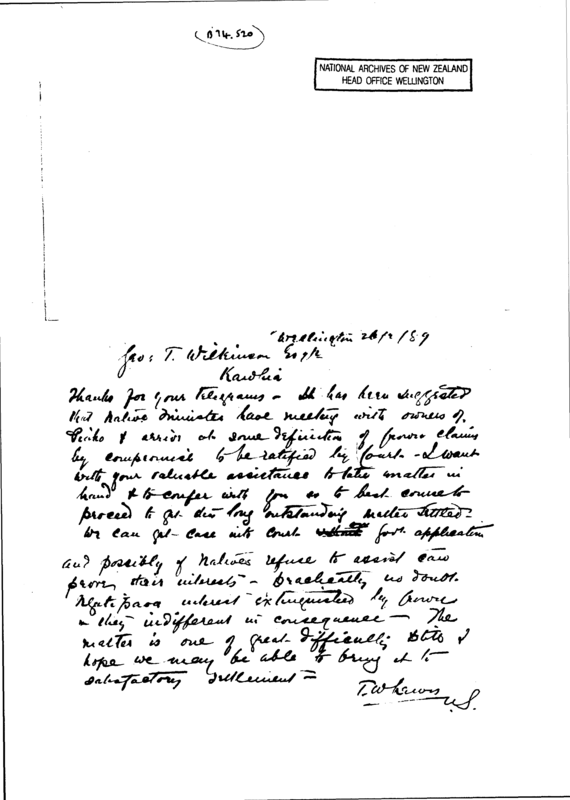 (D 74.520)
NATIONAL ARCHIVES OF NEW ZEALAND
HEAD OFFICE WELLINGTON
Wellington 26/2/89
Geo: T. Wilkinson Esqre
Kawhia
Thanks for your telegrams - It has been suggested
that Native Minister have meeting with owners of
Piako & arrive at some definition of Crown claims
by compromise to be ratified by Court - I want
with your valuable assistance to take matter in
hand & to confer with you as to best course to
proceed to get this long outstanding matter settled -
We can get case into Court on Govt application
and possibly if Natives refuse to assist can
prove their interests - Practically no doubt
Ngatipaoa interest extinguished by Crown
& they indifferent in consequence - The
matter is one of great difficulty but I
hope we may be able to bring it to
satisfactory settlement =
T. W. Lewis
U.S.